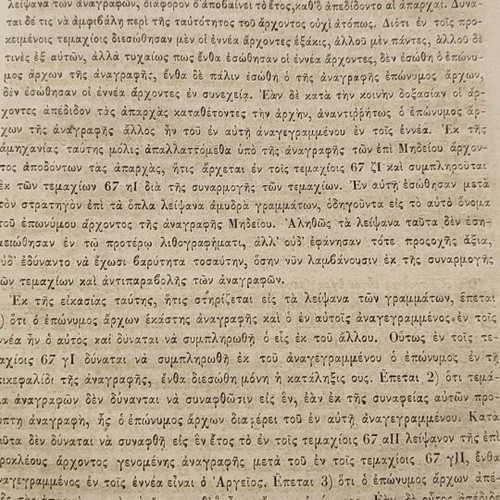 λείψανα τῶν ἀναγραφῶν, διάφορον δ'ἀποβαίνει τὸ ἔτος, καθ' ὃ ἀπεδίδοντο αἱ ἀπαρχαί. Δυνα-
ται δέ τις νὰ ἀμφιβάλῃ περὶ τῆς ταὐτότητος τοῦ ἄρχοντος οὐχὶ ἀτόπως. Διότι ἐν τοῖς προ-
κειμένοις τεμαχίοις διεσώθησαν μὲν οἱ ἐννέα ἄρχοντες ἑξάκις, ἀλλοῦ μὲν πάντες, ἀλλοῦ δὲ
τινὲς ἐξ αὐτῶν, ἀλλὰ τυχαίως πως ἔνθα ἐσώθησαν οἱ ἐννέα ἄρχοντες, δὲν ἐσώθη ὁ ἐπώνυ-
μος ἄρχων τῆς ἀναγραφῆς, ἔνθα δὲ πάλιν ἐσώθη ὁ τῆς ἀναγραφῆς ἐπώνυμος ἄρχων,
δὲν ἐσώθησαν οἱ ἐννέα ἄρχοντες ἐν συνεχείᾳ. Ἐὰν δὲ κατὰ τὴν κοινὴν δοξασίαν οἱ ἄρ-
χοντες ἀπέδιδον τὰς ἀπαρχὰς καταθέτοντες τὴν ἀρχὴν, ἀναντιῤῥήτως ὁ ἐπώνυμος ἄρ-
χων τῆς ἀναγραφῆς ἄλλος ἦν τοῦ ἐν αὐτῇ ἀναγεγραμμένου ἐν τοῖς ἐννέα. Ἐκ τῆς
ἀμηχανίας ταύτης μόλις ἀπαλλαττόμεθα ὑπὸ τῆς ἀναγραφῆς τῶν ἐπὶ Μηδείου ἀρχον-
τος ἀποδόντων τὰς ἀπαρχὰς, ἥτις ἄρχεται ἐν τοῖς τεμαχίοις 67 ζΙ καὶ συμπληροῦται
ἐκ τῶν τεμαχίων 67 ηΙ διὰ τῆς συναρμογῆς τῶν τεμαχίων. Ἐν αὐτῇ ἐσώθησαν μετὰ
τὸν στρατηγὸν ἐπὶ τὰ ὅπλα λείψανα ἀμυδρὰ γραμμάτων, ὁδηγοῦντα εἰς τὸ αὐτὸ ὄνομα
τοῦ ἐπωνύμου ἄρχοντος τῆς ἀναγραφῆς Μηδείου. Ἀληθῶς τὰ λείψανα ταῦτα δὲν ἐση-
μειώθησαν ἐν τῷ προτέρῳ λιθογραφήματι, ἀλλ' οὐδ' ἐφάνησαν τότε προςοχῆς ἄξια,
οὐδ' ἐδύναντο νὰ ἔχωσι βαρύτητα τοσαύτην, ὅσην νῦν λαμβάνουσιν ἐκ τῆς συναρμογῆς
τῶν τεμαχίων καὶ ἀντιπαραβολῆς τῶν ἀναγραφῶν.
Ἐκ τῆς εἰκασίας ταύτης, ἥτις στηρίζεται εἰς τὰ λείψανα τῶν γραμμάτων, ἕπεται
) ὅτι ὁ ἐπώνυμος ἄρχων ἑκάστης ἀναγραφῆς καὶ ὁ ἐν αὐτοῖς ἀναγεγραμμένος ἐν τοῖς
ἐννέα ἦν ὁ αὐτὸς καὶ δύναται νὰ συμπληρωθῇ ὁ εἷς ἐκ τοῦ ἄλλου. Οὕτως ἐν τοῖς τε-
μαχίοις 67 γΙ δύναται νὰ συμπληρωθῇ ἐκ τοῦ ἀναγεγραμμένου ὁ ἐπώνυμος ἐν τῇ
ἐπικεφαλίδι τῆς ἀναγραφῆς, ἔνθα διεσώθη μόνη ἡ κατάληξις ους. Ἕπεται 2) ὅτι τεμά-
ια ἀναγραφῶν δὲν δύνανται νὰ συναφθῶσιν εἰς ἓν, ἐὰν ἐκ τῆς συναφείας αὐτῶν προ-
κύπτῃ ἀναγραφὴ, ἧς ὁ ἐπώνυμος ἄρχων διαφέρει τοῦ ἐν αὐτῇ ἀναγεγραμμένου. Κατὰ
ταῦτα δὲν δύναται νὰ συναφθῇ εἰς ἓν ἔτος τὸ ἐν τοῖς τεμαχίοις 67 αΙΙ λείψανον τῆς ἐπὶ
προκλέους ἄρχοντος γενομένης ἀναγραφῆς μετὰ τοῦ ἐν τοῖς τεμαχίοις 67 γΙΙ, ἔνθα
ἀναγεγραμμένος ἐν τοῖς ἐννέα εἶναι ὁ Ἀργεῖος. Ἕπεται 3) ὅτι ὁ ἐπώνυμος ἄρχων ἀπέ-